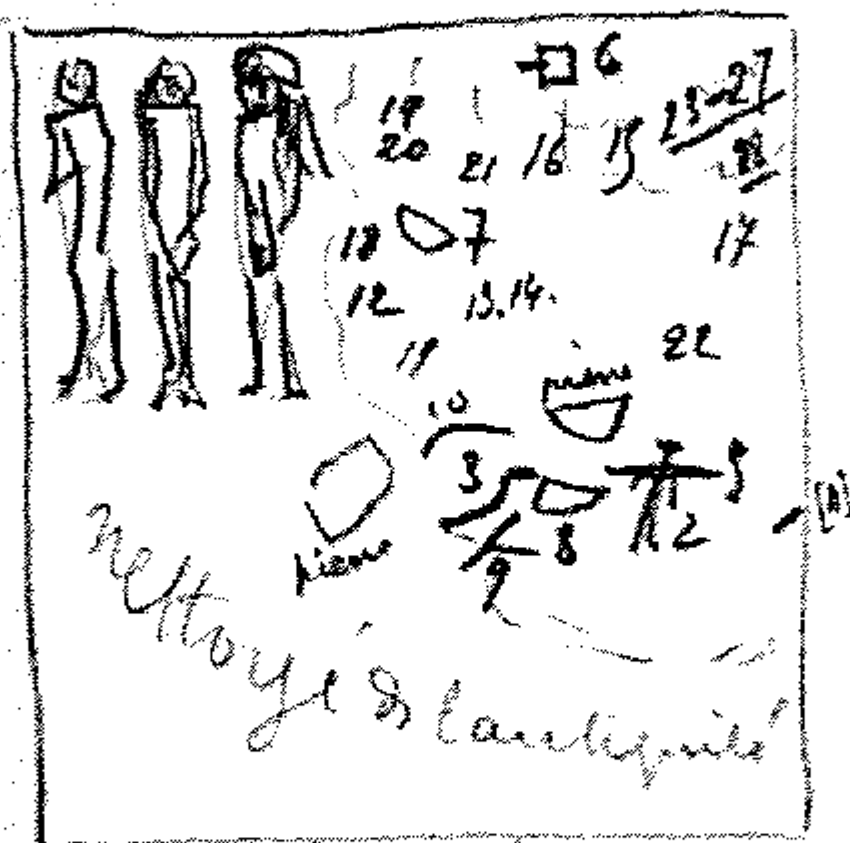 6
19
20
21
16
15
23-27
28
18
7
17
12
13.14.
22
19
pierre
10
3
5
2
8
9
pierre
[A]
nettoyé ds l'antiquité